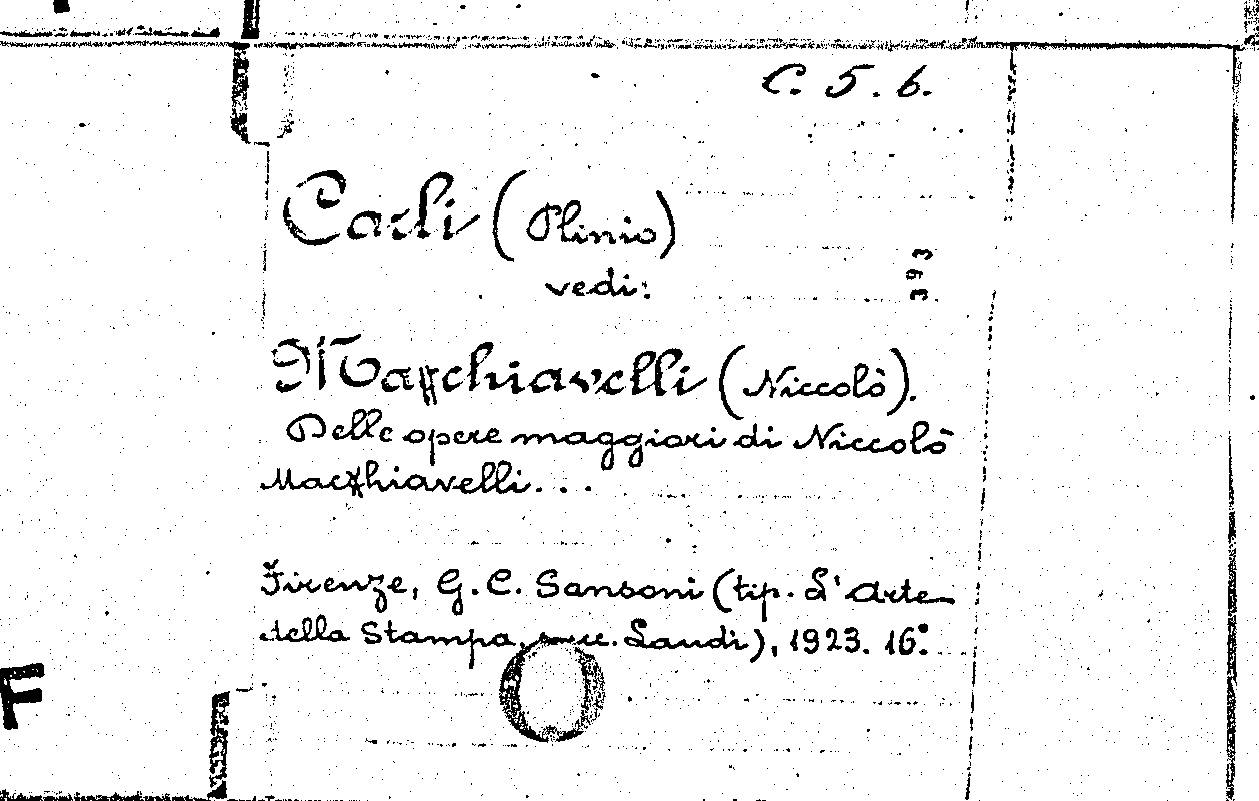 C. 5. 6.
Carli (Plinio)
vedi:
393
Machiavelli (Niccolò).
Delle opere maggiori di Niccolò
Machiavelli...
Firenze, G. C. Sansoni (tip. L'Arte
della Stampa, succ. Landi), 1923. 16°.
F